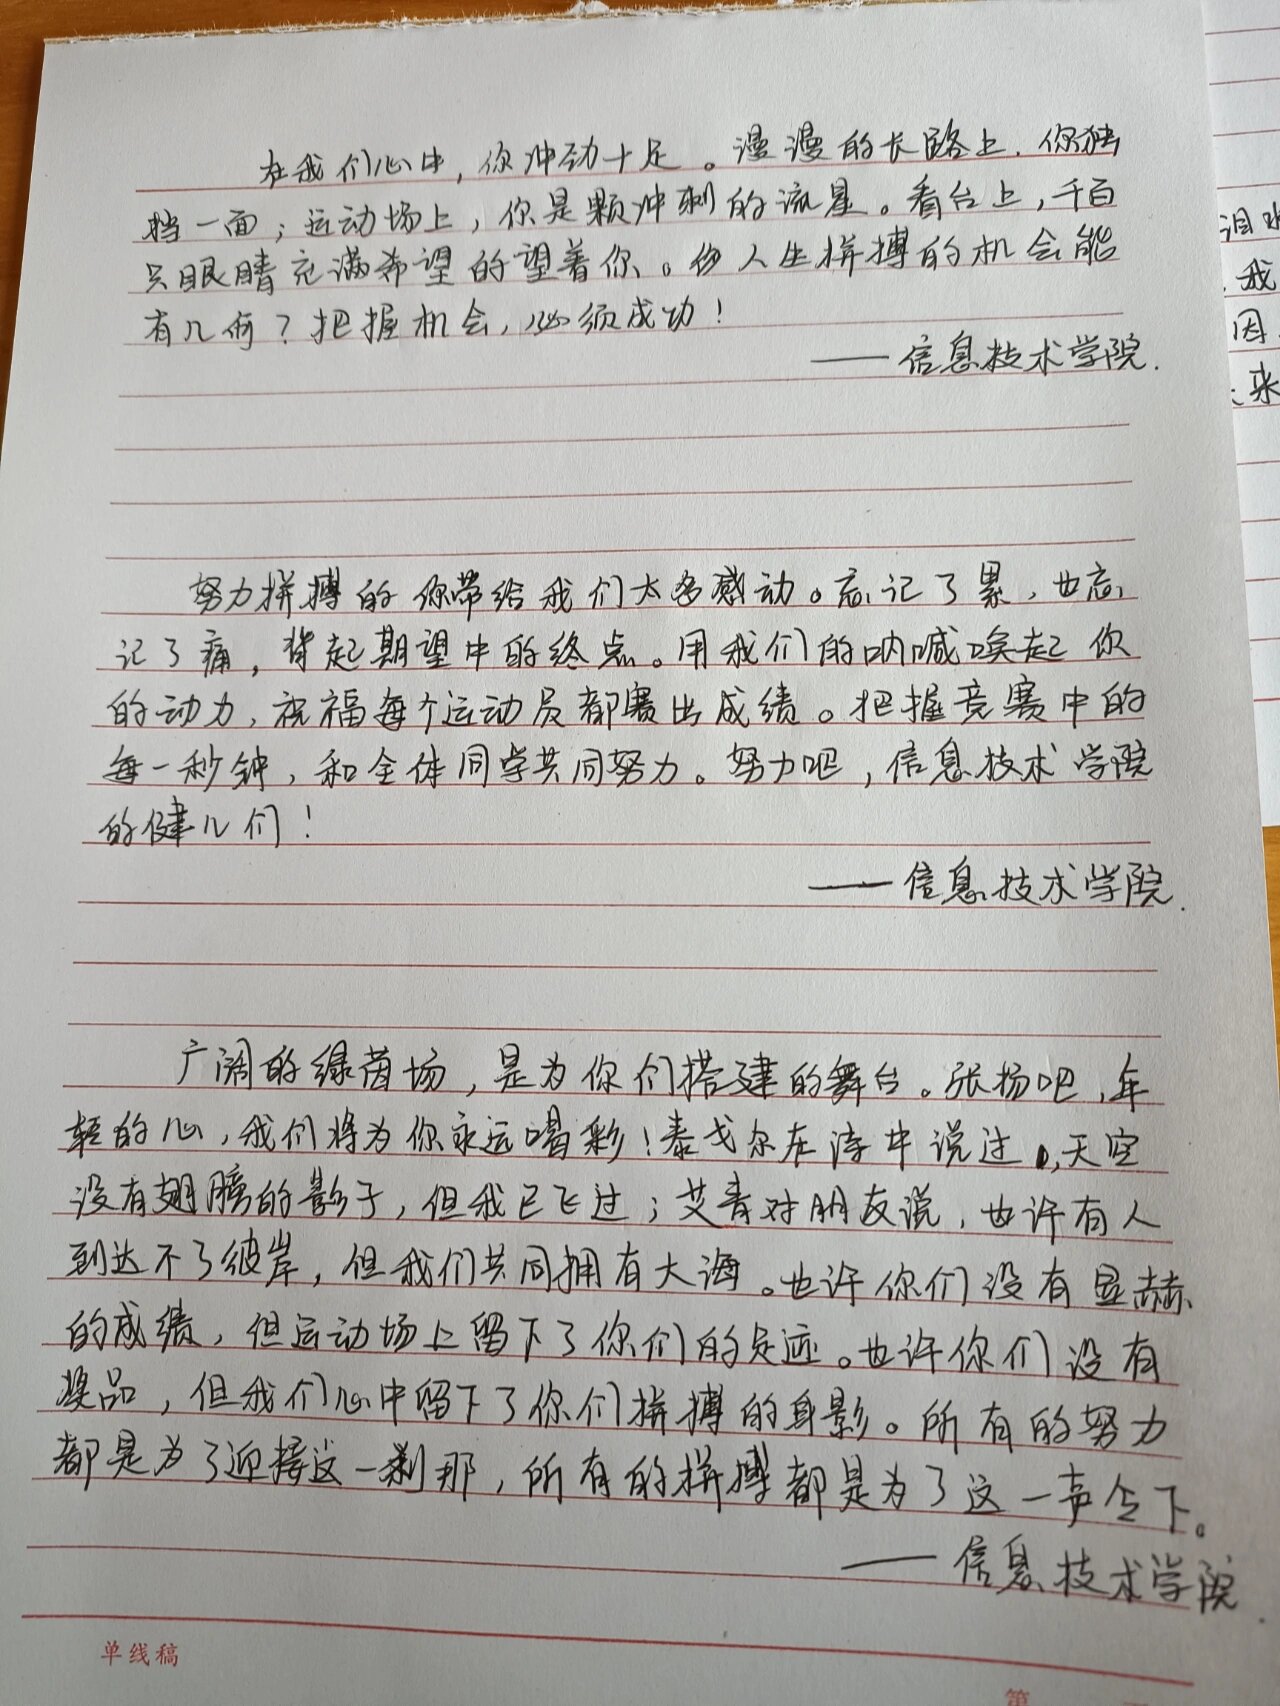 在我们心中，你冲劲十足。漫漫的长路上，你独
挡一面；运动场上，你是颗冲刺的流星。看台上，千百
只眼睛充满希望的望着你。人生拼搏的机会能
有几何？把握机会，必须成功！
——信息技术学院.
努力拼搏的你带给我们太多感动。忘记了累，也忘
记了痛，背起期望中的终点。用我们的呐喊唤起你
的动力，祝福每个运动员都赛出成绩。把握竞赛中的
每一秒钟，和全体同学共同努力。努力吧，信息技术学院
的健儿们！
——信息技术学院.
广阔的绿茵场，是为你们搭建的舞台。张扬吧，年
轻的心，我们将为你永远喝彩！泰戈尔在诗中说过，天空
没有翅膀的影子，但我已飞过；艾青对朋友说，也许有人
到达不了彼岸，但我们共同拥有大海。也许你们没有显赫
的成绩，但运动场上留下了你们的足迹。也许你们没有
奖品，但我们心中留下了你们拼搏的身影。所有的努力
都是为了迎接这一刹那，所有的拼搏都是为了这一声令下。
——信息技术学院.
单线稿
第
泪水
我
因
来